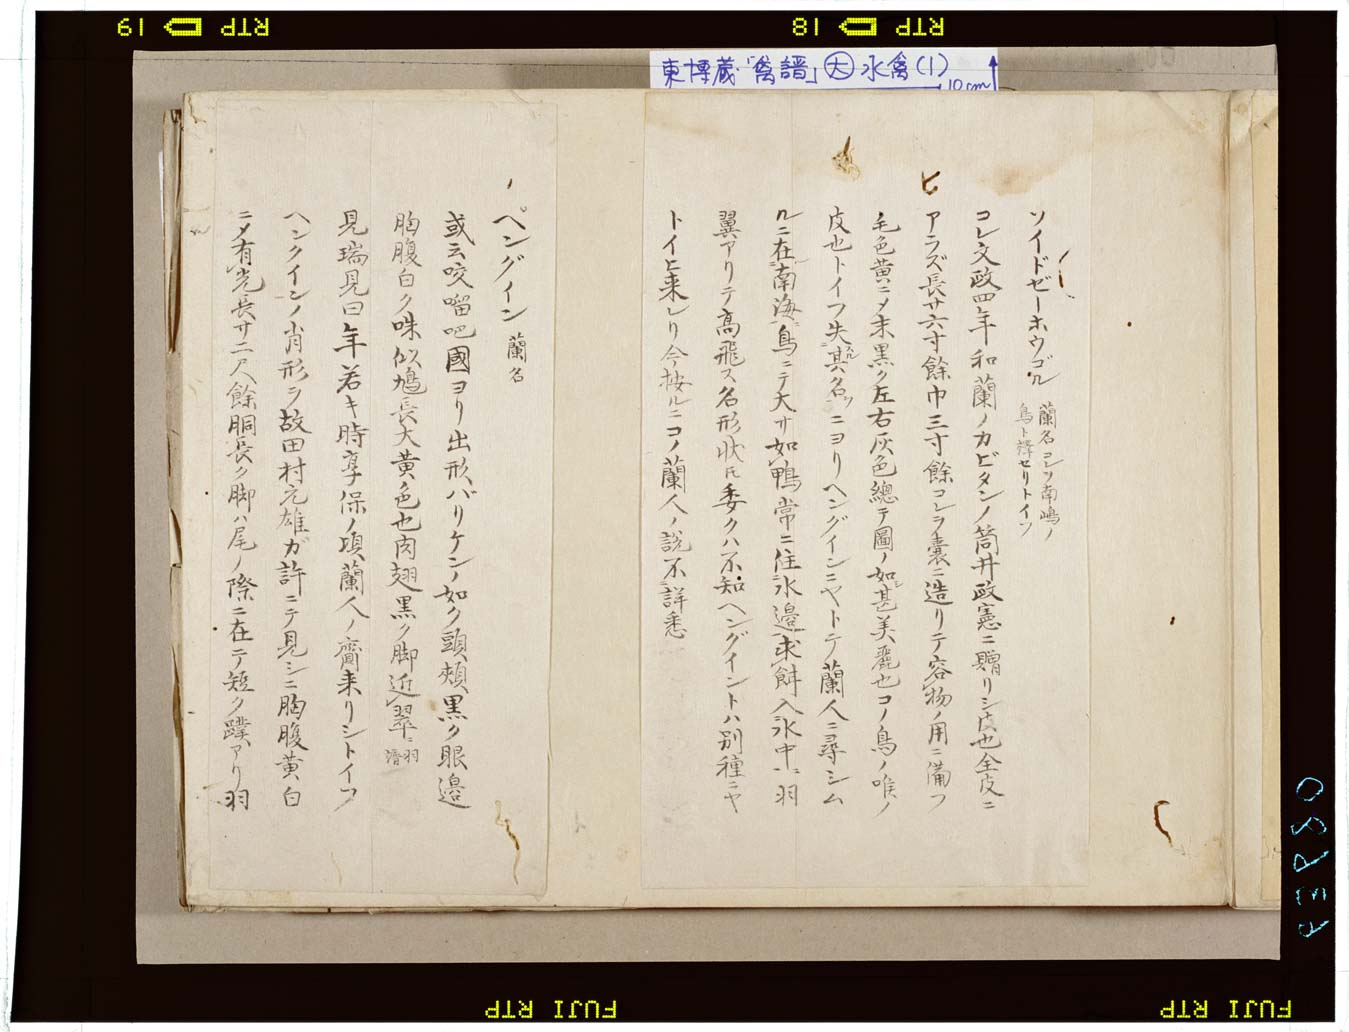 東博蔵「禽譜」大 水禽(1)
10cm
ソイドゼーホウゴル 蘭名コレヲ南嶋ノ
鳥ト譯セリトイフ
コレ文政四年和蘭ノカビタンノ筒井政憲ニ贈リシ皮也全皮ニ
アラズ長サ六寸餘巾三寸餘コレヲ嚢ニ造リテ容物ノ用ニ備フ
毛色黄ニ〆末黒ク左右灰色總テ圖ノ如シ甚美麗也コノ鳥ノ喉ノ
皮也トイフ失其名ニヨリヘングインニヤトテ蘭人ニ尋シム
ルニ在南海鳥ニテ大サ如鴨常ニ住氷邉求餌入氷中ニ羽
翼アリテ高飛ス名形状氏委クハ不知ヘングイントハ別種ニヤ
トイヒ来レリ今按ルニコノ蘭人ノ説不詳悉
ペングイン 蘭名
或云咬𠺕吧國ヨリ出形バリケンノ如ク頭頬黒ク眼邉
胸腹白ク咮似鳩長大黄色也肉翅黒ク脚近翠ニ羽
見瑞見曰年若キ時享保ノ頃蘭人ノ齎来リシトイフ
ヘンクインノ肖形ヲ故田村元雄ガ許ニテ見シニ胸腹黄白
ニ〆有光長サ二尺餘胴長ク脚ハ尾ノ際ニ在テ短ク蹼アリ羽
RTP 18
RTP 19
FUJI RTP
FUJI RTP